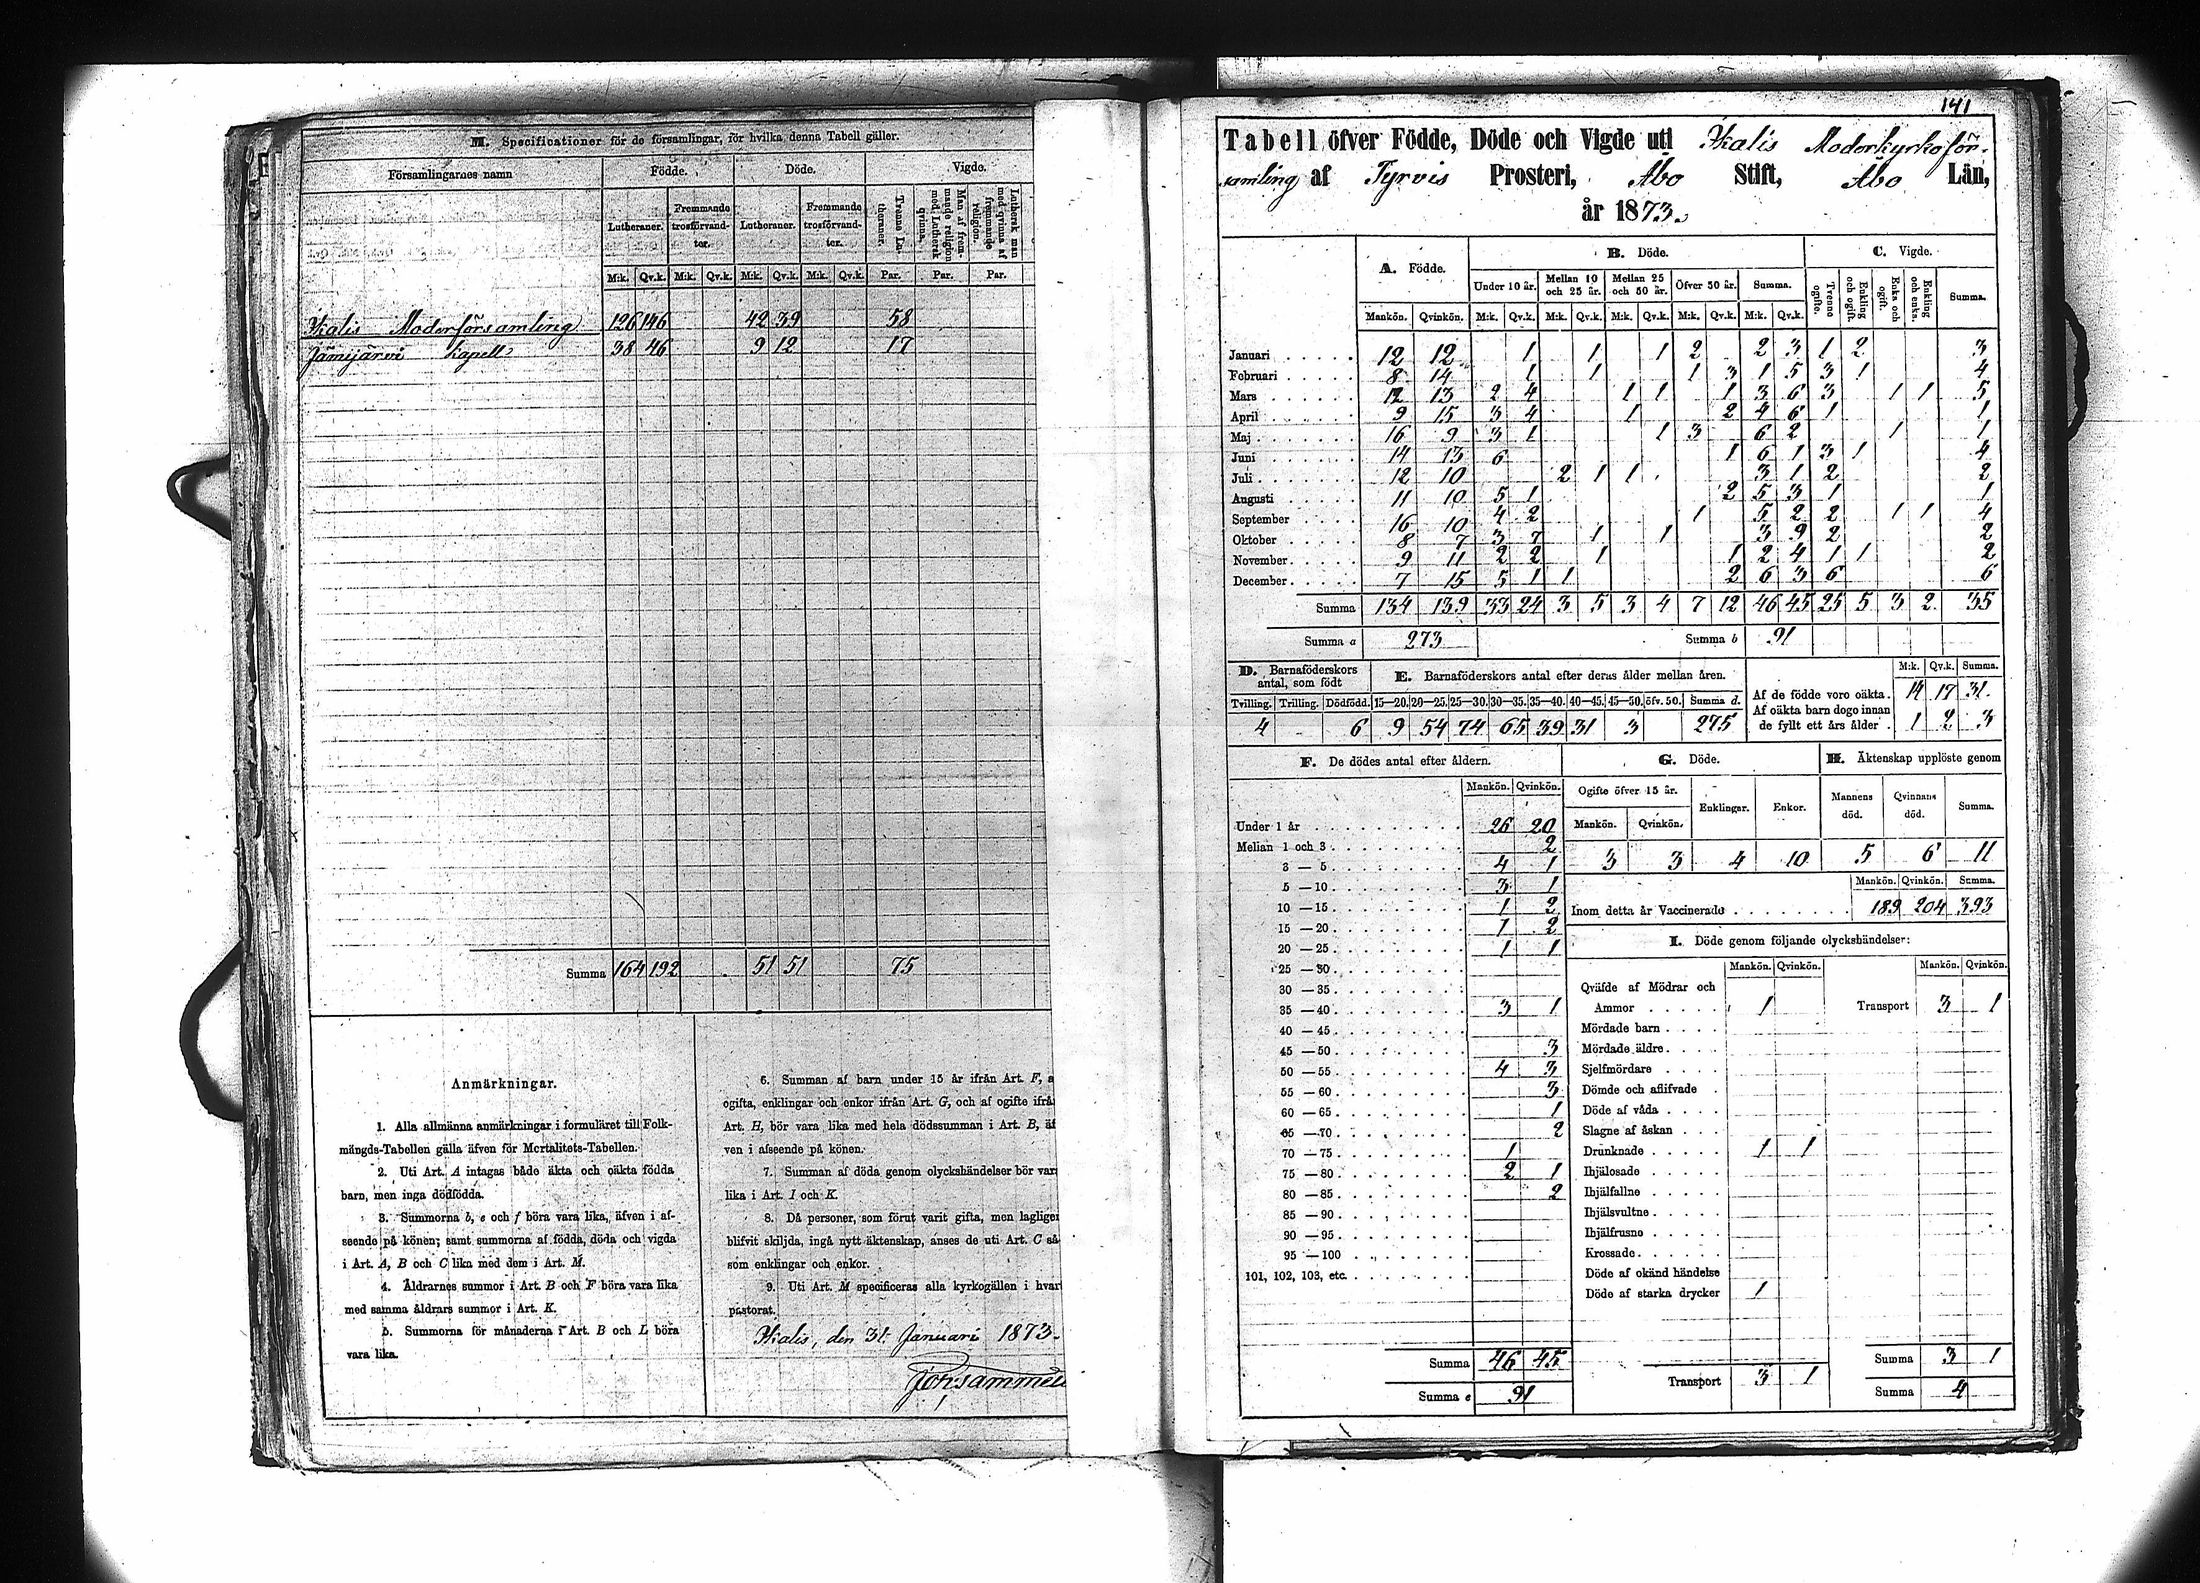 M. Specificationer för de församlingar, för hvilka denna Tabell gäller.
Församlingarnes namn Födde. Döde. Vigde.
Lutheraner. Fremmande trosförvandter. Lutheraner. Fremmande trosförvandter. Trenne Lutheraner. Man af fremmande religion med Luthersk qvinna. Luthersk man med qvinna af fremmande religion.
M:k. Qv.k. M:k. Qv.k. M:k. Qv.k. M:k. Qv.k. Par. Par. Par.
Ikalis Moderförsamling 126 146 42 39 58
Jämijärvi Kapell 38 46 9 12 17
Summa 164 192 51 51 75
Anmärkningar.
1. Alla allmänna anmärkningar i formuläret till Folk-
mängds-Tabellen gälla äfven för Mortalitets-Tabellen.
2. Uti Art. A intagas både äkta och oäkta födda
barn, men inga dödfödda.
3. Summorna b, e och f böra vara lika, äfven i af-
seende på könen; samt summorna af födda, döda och vigda
i Art. A, B och C lika med dem i Art. M.
4. Åldrarnes summor i Art. B och F böra vara lika
med samma åldrars summor i Art. K.
5. Summorna för månaderna i Art. B och L böra
vara lika.
6. Summan af barn under 15 år ifrån Art. F, a
ogifta, enklingar och enkor ifrån Art. G, och af ogifte ifrå
Art. H, bör vara lika med hela dödssumman i Art. B, äf
ven i afseende på könen.
7. Summan af döda genom olyckshändelser bör var
lika i Art. I och K.
8. Då personer, som förut varit gifta, men laglige
blifvit skiljda, ingå nytt äktenskap, anses de uti Art. C så
som enklingar och enkor.
9. Uti Art. M specificeras alla kyrkogällen i hvar
pastorat.
Ikalis, den 31 Januari 1873.
141
Tabell öfver Födde, Döde och Vigde uti Ikalis Moderkyrkoför-
samling af Tyrvis Prosteri, Åbo Stift, Åbo Län,
år 1873.
A. Födde. B. Döde. C. Vigde.
Under 10 år. Mellan 10 och 25 år. Mellan 25 och 50 år. Öfver 50 år. Summa. Trenne ogifte. Enkling och ogift. Enka och ogift. Enkling och enka. Summa.
Mankön. Qvinkön. M:k. Qv.k. M:k. Qv.k. M:k. Qv.k. M:k. Qv.k. M:k. Qv.k.
Januari 12 12 1 1 1 2 2 3 1 2 3
Februari 8 14 1 1 1 3 1 5 3 1 4
Mars 12 13 2 4 1 1 1 3 6 3 1 1 5
April 9 15 3 4 1 2 4 6 1 1
Maj 16 9 3 1 1 3 6 2 1 1
Juni 14 13 6 1 6 1 3 1 4
Juli 12 10 2 1 1 3 1 2 2
Augusti 11 10 5 1 2 5 3 1 1
September 16 10 4 2 1 5 2 2 1 1 4
Oktober 8 7 3 7 1 1 3 9 2 2
November 9 11 2 2 1 1 2 4 1 1 2
December 7 15 5 1 1 2 6 3 6 6
Summa 134 139 33 24 3 5 3 4 7 12 46 45 25 5 3 2 35
Summa a 273 Summa b 91
D. Barnaföderskors antal, som födt
Tvilling. Trilling. Dödfödd.
4 6
E. Barnaföderskors antal efter deras ålder mellan åren.
15—20. 20—25. 25—30. 30—35. 35—40. 40—45. 45—50. öfv. 50. Summa d.
9 54 74 65 39 31 3 275
M:k. Qv.k. Summa.
Af de födde voro oäkta. 14 17 31
Af oäkta barn dogo innan
de fyllt ett års ålder . 1 2 3
F. De dödes antal efter åldern.
Mankön. Qvinkön.
Under 1 år 26 20
Mellan 1 och 3 2
3 — 5 4 1
5 —10 3 1
10 —15 1 2
15 —20 1 2
20 —25 1 1
25 —30
30 —35
35 —40 3 1
40 —45
45 —50 3
50 —55 4 3
55 —60 3
60 —65 1
65 —70 2
70 —75 1
75 —80 2 1
80 —85 2
85 —90
90 —95
95 —100
101, 102, 103, etc.
Summa 46 45
Summa e 91
G. Döde.
Ogifte öfver 15 år. Enklingar. Enkor.
Mankön. Qvinkön.
3 3 4 10
H. Äktenskap upplöste genom
Mannens död. Qvinnans död. Summa.
5 6 11
Mankön. Qvinkön. Summa.
Inom detta år Vaccinerade 189 204 393
I. Döde genom följande olyckshändelser:
Mankön. Qvinkön. Mankön. Qvinkön.
Qväfde af Mödrar och
Ammor 1 Transport 3 1
Mördade barn
Mördade äldre
Sjelfmördare
Dömde och aflifvade
Döde af våda
Slagne af åskan
Drunknade 1 1
Ihjälosade
Ihjälfallne
Ihjälsvultne
Ihjälfrusne
Krossade
Döde af okänd händelse
Döde af starka drycker 1
Transport 3 1
Summa 3 1
Summa 4